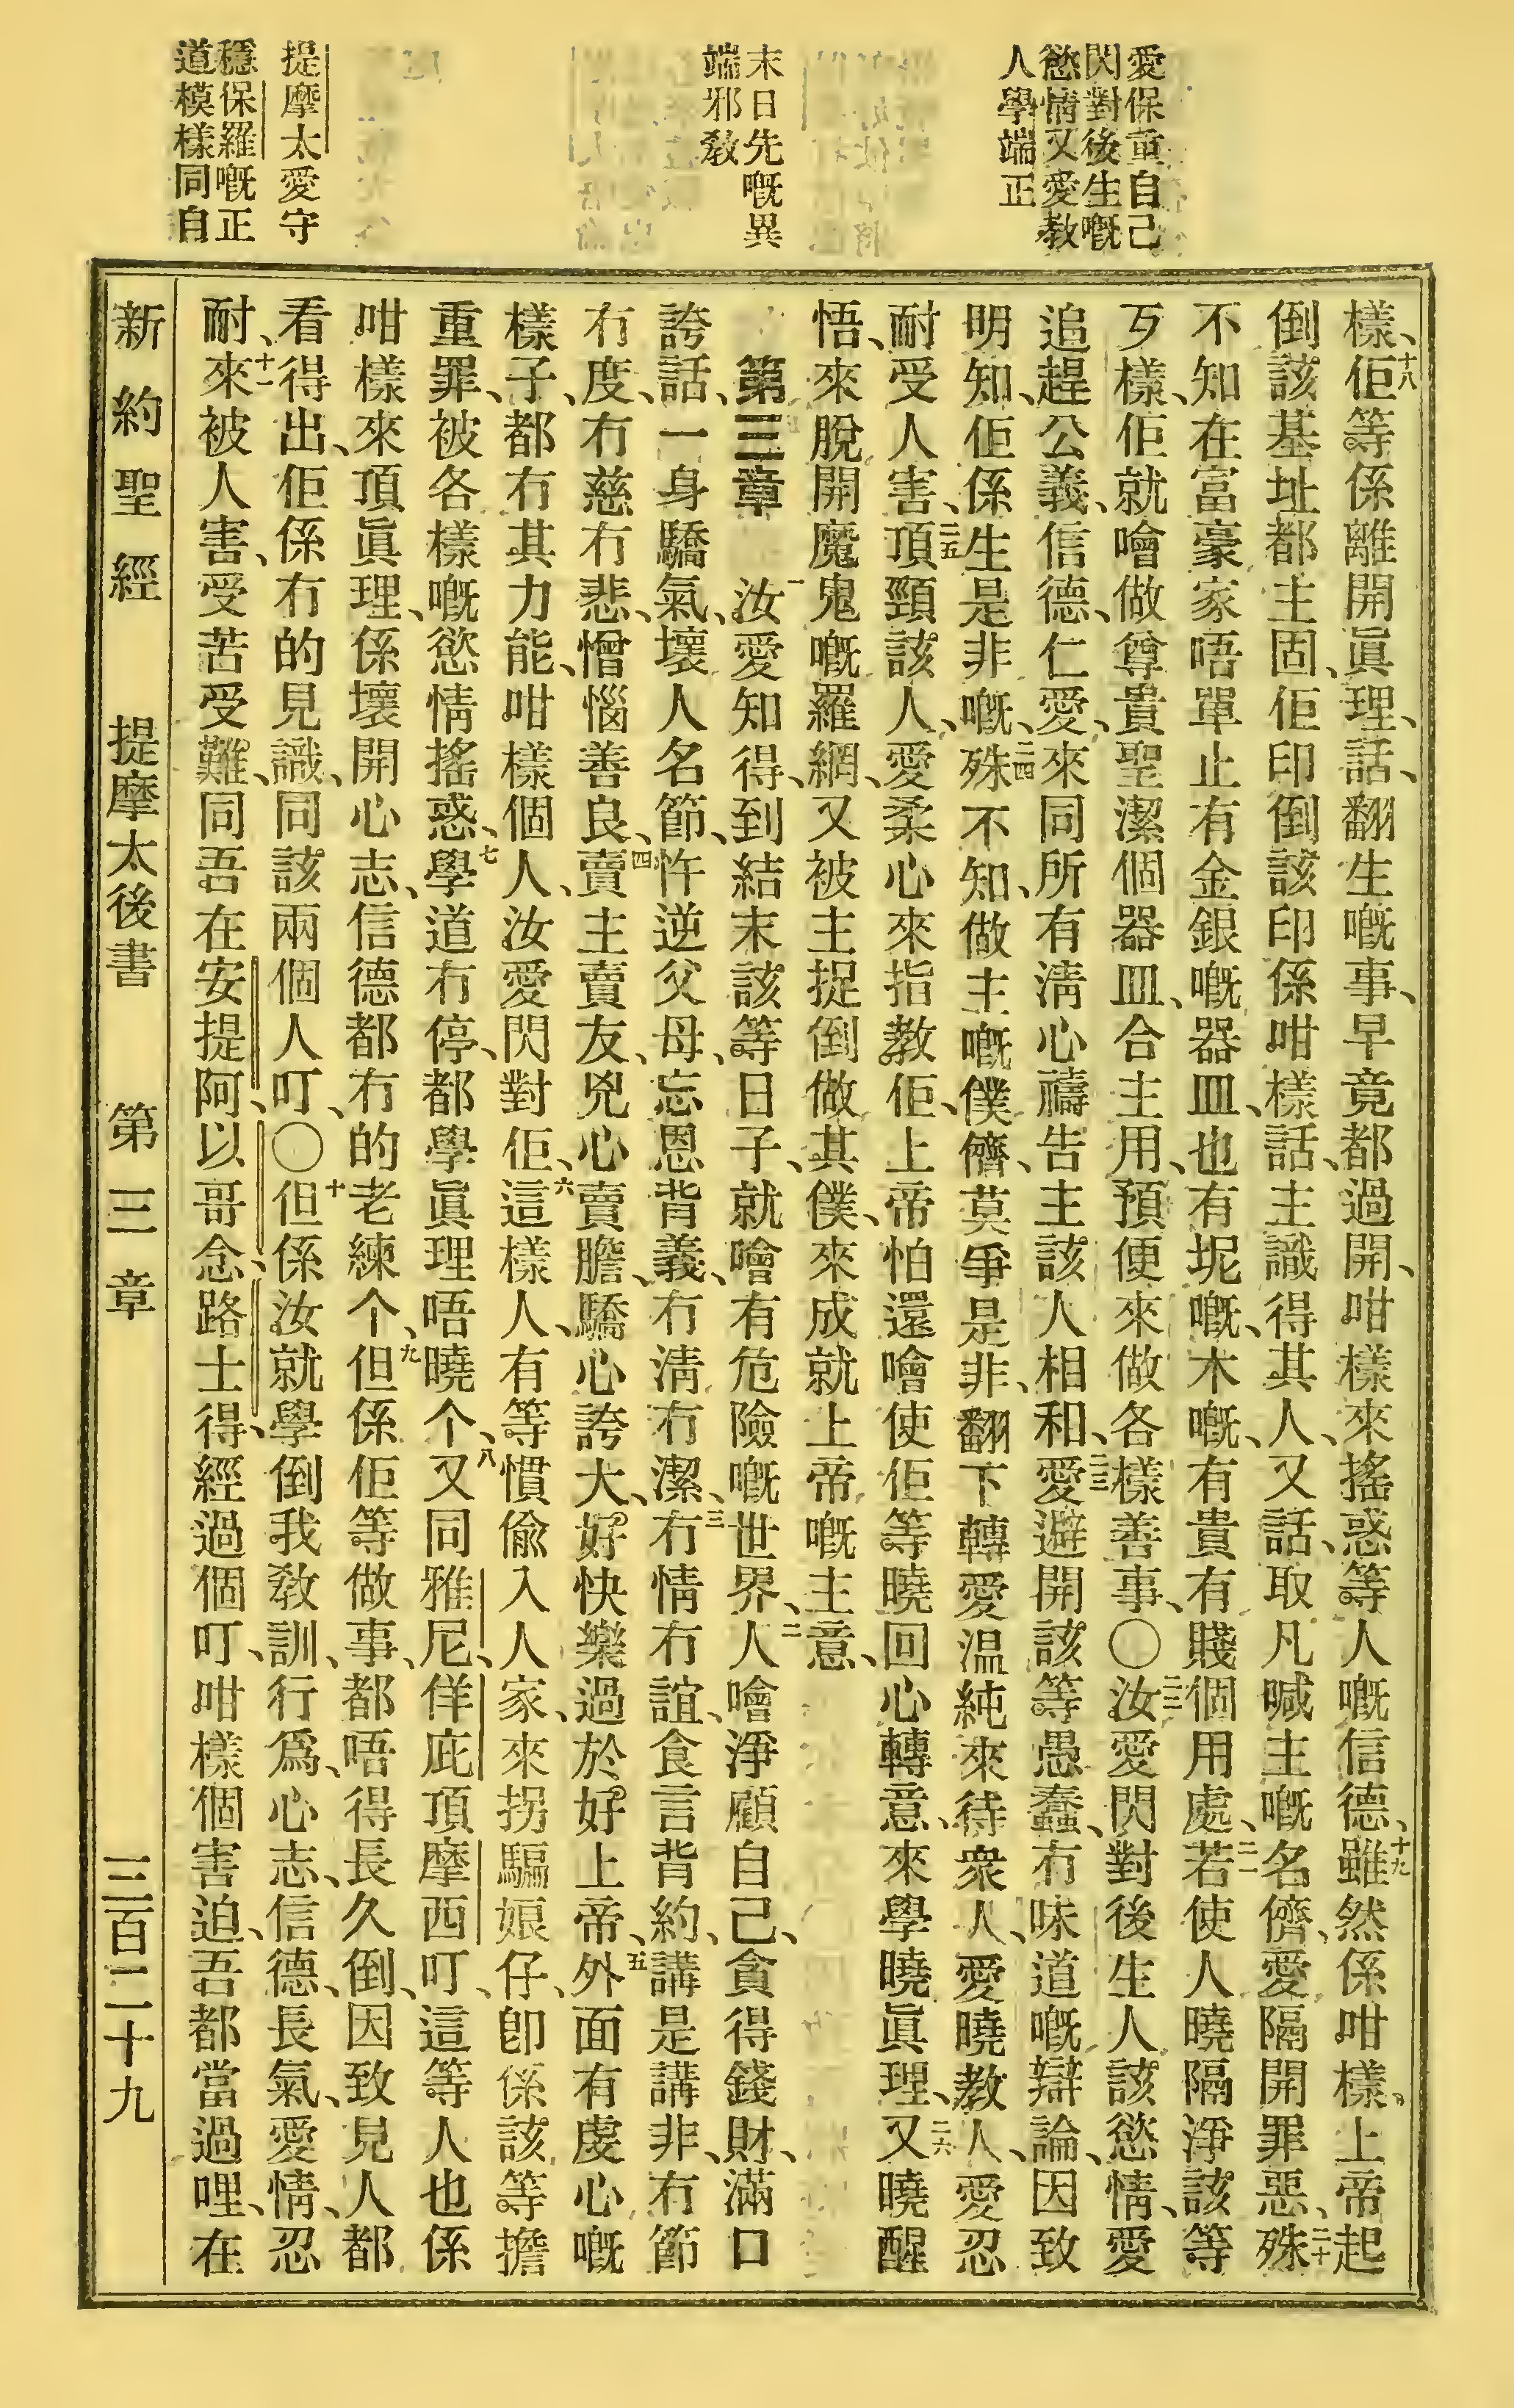 愛保重自己
閃對後生嘅
慾情又愛敎
人學端正
末日先嘅異
端邪敎
提摩太愛守
穩保羅嘅正
道模樣同自
樣、十八佢等係離開眞理、話、翻生嘅事、早竟都過開、咁樣來搖惑等人嘅信德、十九雖然係咁樣、上帝起
倒該基址都主固、佢印倒該印係咁樣話、主識得其人、又話、取凡喊主嘅名儕、愛隔開罪惡、二十殊
不知在富豪家唔單止有金銀嘅器皿、也有坭嘅、木嘅、有貴有賤個用處、二一若使人曉隔淨該等
歹樣、佢就噲做尊貴聖潔個器皿、合主用、預便來做各樣善事、〇二二汝愛閃對後生人該慾情、愛
追趕公義、信德、仁愛、來同所有淸心禱告主該人相和、二三愛避開該等愚蠢、冇味道嘅辯論、因致
明知、佢係生是非嘅、二四殊不知、做主嘅僕儕、莫爭是非、翻下轉愛温純來待衆人、愛曉教人、愛忍
耐受人害、二五頂頸該人、愛柔心來指教佢、上帝怕還噲使佢等曉回心轉意、來學曉眞理、二六又曉醒
悟、來脫開魔鬼嘅羅網、又被主捉倒做其僕、來成就上帝嘅主意、
第三章　一汝愛知得、到結末該等日子、就噲有危險嘅世界、二人噲淨顧自己、貪得錢財、滿口
誇話、一身驕氣、壞人名節、忤逆父母、忘恩背義、冇淸冇潔、三冇情冇誼、食言背約、講是講非、冇節
冇度、冇慈冇悲、憎惱善良、四賣主賣友、兇心賣膽、驕心誇大、好快樂過於好上帝、五外面有虔心嘅
樣子、都冇其力能、咁樣個人、汝愛閃對佢、六這樣人、有等慣偷入人家、來拐騙娘仔、卽係該等擔
重罪、被各樣嘅慾情搖惑、七學道冇停、都學眞理唔曉个、八又同雅尼、佯庇頂摩西叮、這等人也係
咁樣來頂眞理、係壞開心志、信德都冇的老練个、九但係佢等做事、都唔得長久倒、因致見人都
看得出、佢係冇的見識、同該兩個人叮、〇十但係汝就學倒我敎訓、行爲、心志、信德、長氣、愛情、忍
耐、十一來被人害、受苦受難、同吾在安提阿、以哥念、路士得、經過個叮、咁樣個害迫、吾都當過哩、在
新約聖經　提摩太後書　第三章　三百二十九